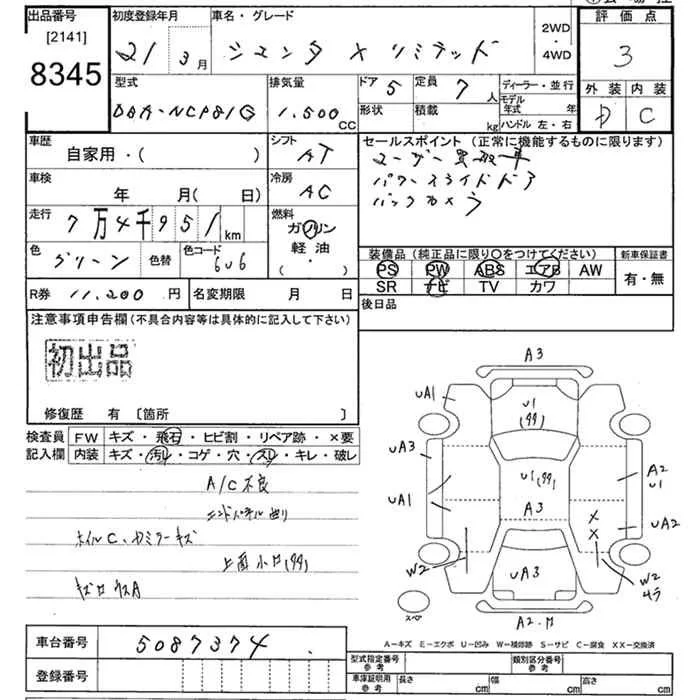 出品番号
[2141]
8345
初度登録年月
21年 3月
車名・グレード
シエンタ X リミテッド
2WD
4WD
評価点
3
外装 内装
D C
型式
DBA-NCP81G
排気量
1,500 CC
ドア 5
形状
定員 7人
積載 kg
ディーラー・並行
モデル年式 年
ハンドル 左・右
車歴
自家用・( )
シフト
AT
車検
年 月(日)
冷房
AC
走行
7万4千951km
燃料
ガソリン
軽油
( ・ )
色
グリーン
色替
色コード
6U6
R券 11,200円
名変期限 月 日
セールスポイント(正常に機能するものに限ります)
ユーザー買取車
パワースライドドア
バックカメラ
装備品(純正品に限り○をつけてください)
PS PW ABS エアB AW
SR ナビ TV カワ
新車保証書
有・無
後日品
注意事項申告欄(不具合内容等は具体的に記入して下さい)
初出品
修復歴 有 〔箇所 〕
検査員記入欄
FW キズ・飛石・ヒビ割・リペア跡・×要
内装 キズ・汚レ・コゲ・穴・スレ・キレ・破レ
A/C不良
エンドパネル曲り
ホイルC、ミラーキズ
上面小凹(多)
A3
UA1
U1
UA1
UA3
U1
A2
U1
UA1
A3
UA2
X
X
W2
UA3
W2
スペア
A2.
A－キズ E－エクボ U－凹み W－補修跡 S－サビ C－腐食 XX－交換済
車台番号
5087374
登録番号
型式指定番号 参考
類別区分番号 参考
車庫証明用 参考
長さ cm
幅 cm
高さ cm